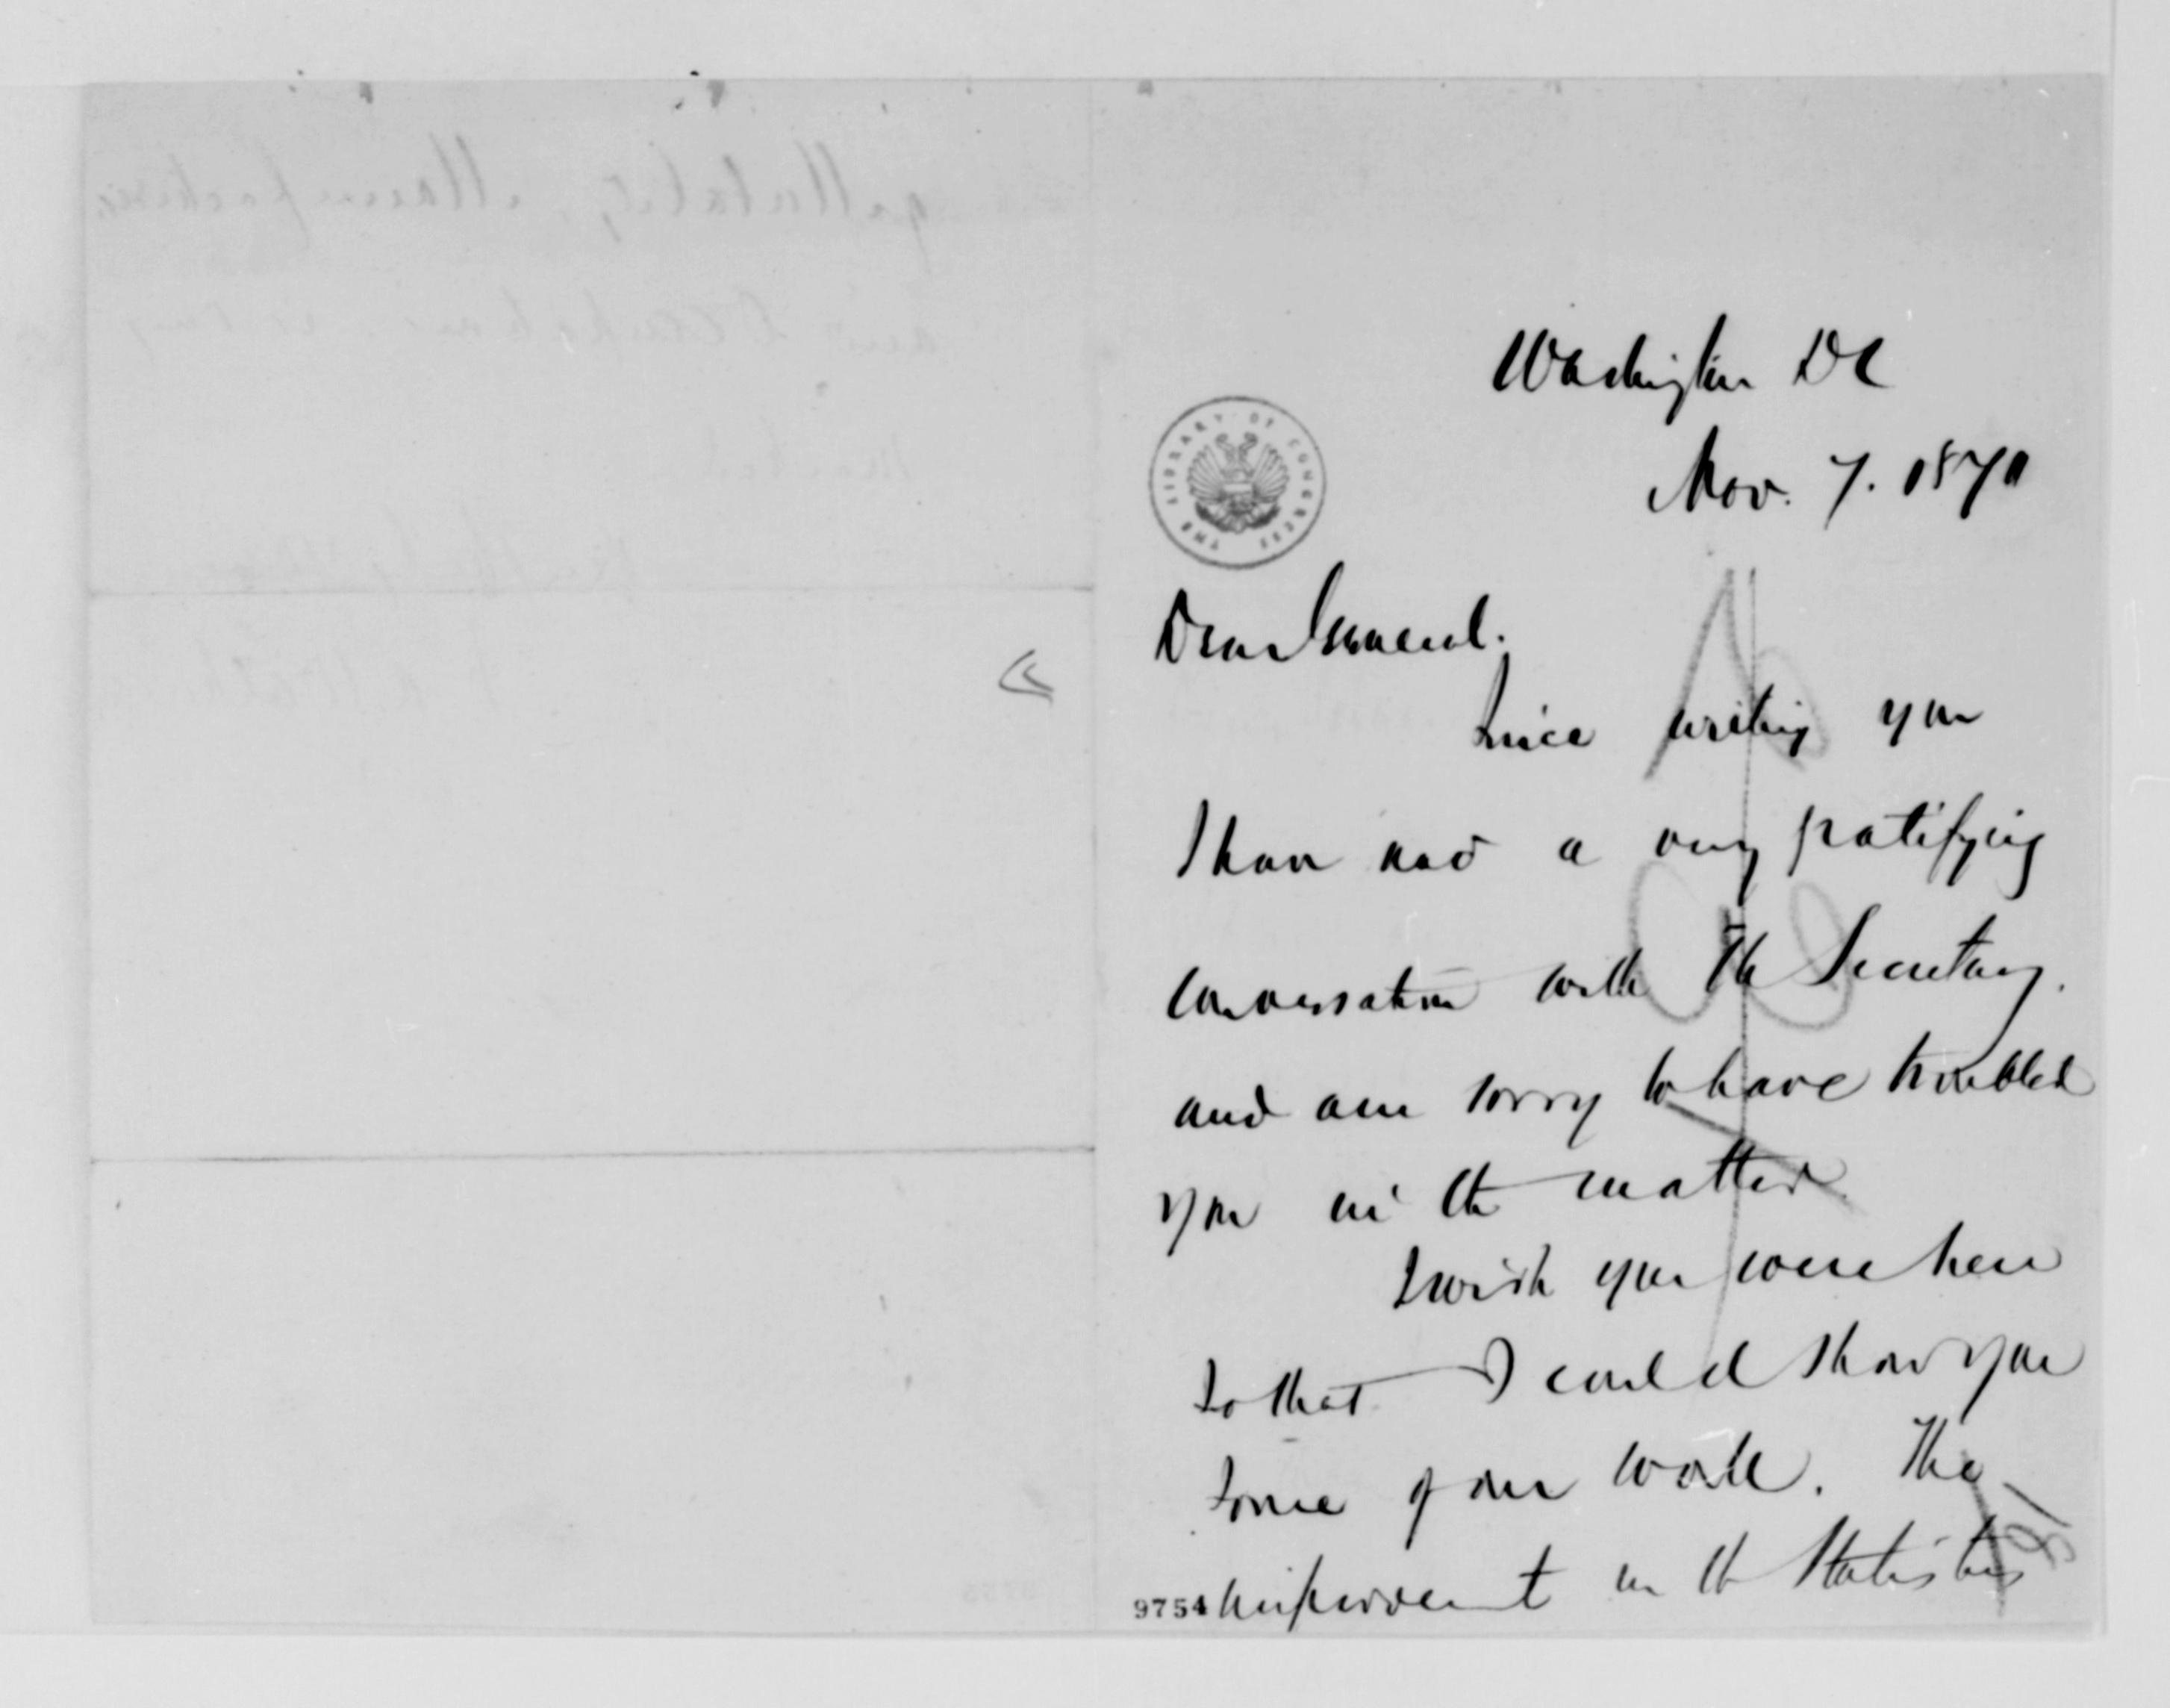 Washington DC
Nov. 7. 1870
THE LIBRARY OF CONGRESS
Dear General.
Since writing you
I have had a very gratifying
conversation with the Secretary.
and am sorry to have troubled
you in the matter.
I wish you were here
so that I could show you
some of our work. The
improvement in the Statistics
9754
of Mortality, Manufactures
and Occupations is very
marked.
F A Walker